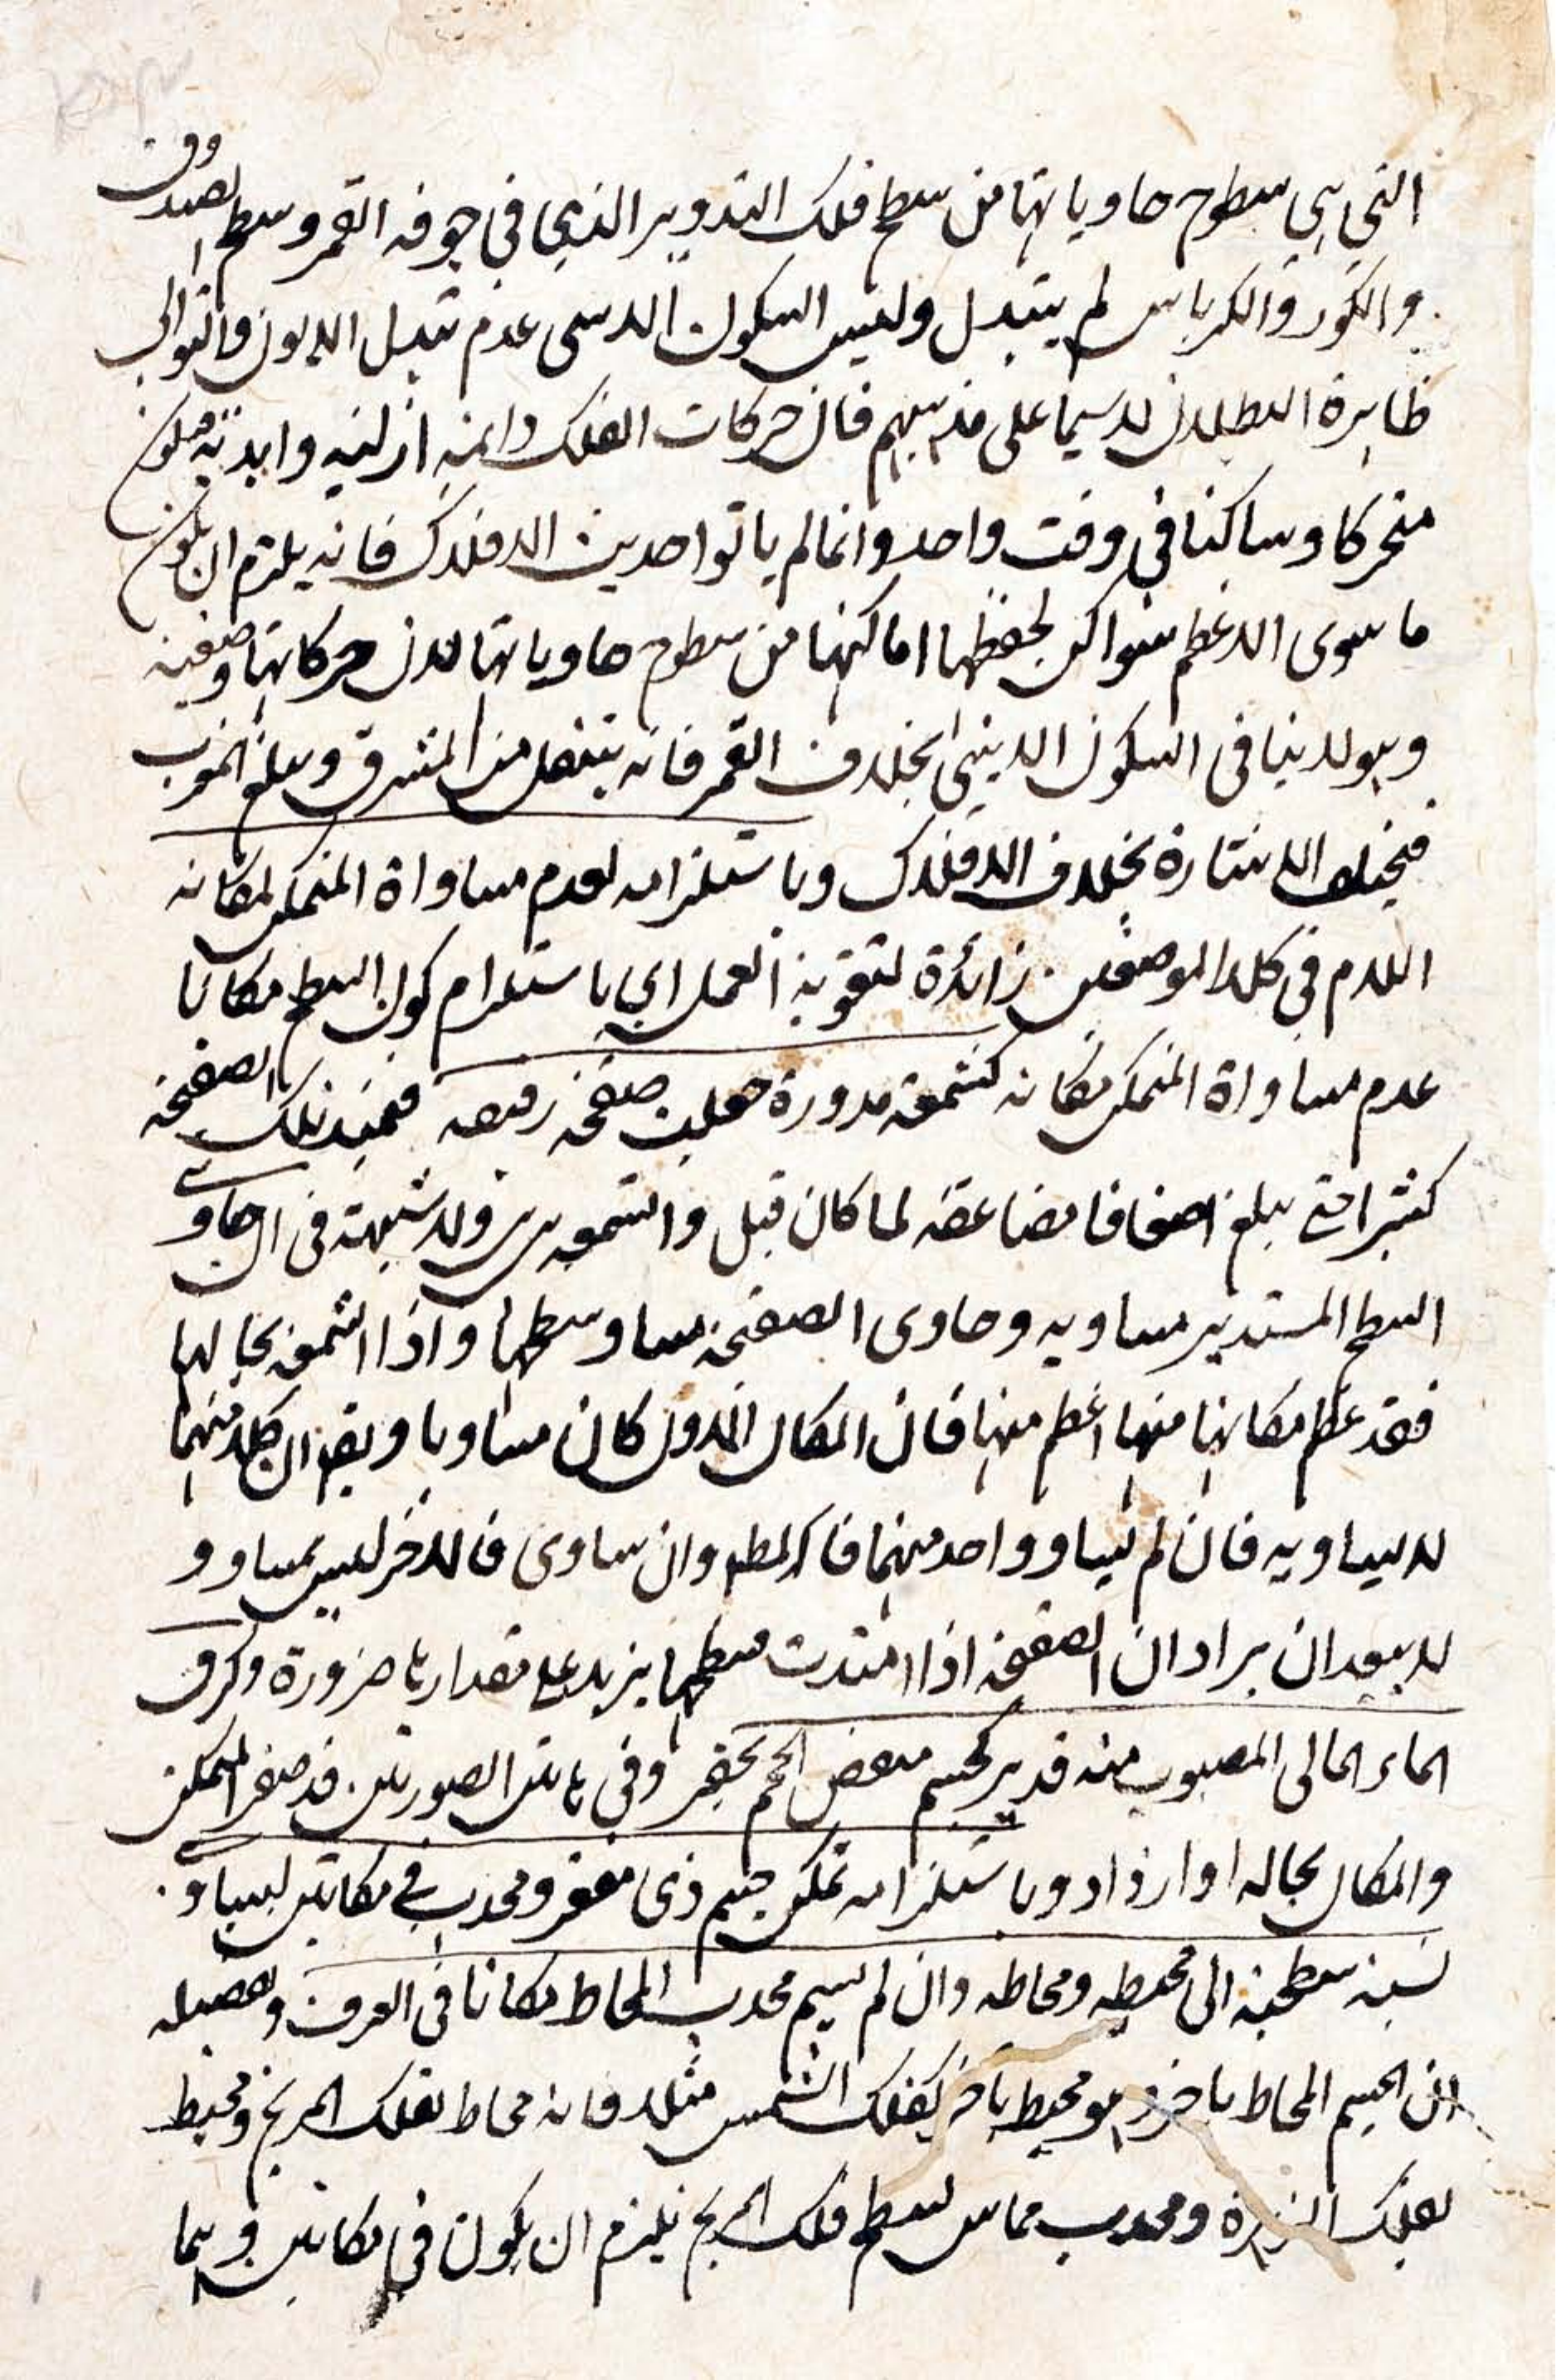 التي هي سطوح حاوياتها من سطح فلك التدوير الذي في جوفه القمر وسطح الصندوق
والكور والكرباس لم يتبدل وليس السكون الا سمى عدم تبدل الايون والتوالي
ظاهرة البطلان لا سيما على مذهبهم فان حركات الفلك دائمة ازلية وابدية فيكون
متحركا وساكنا في وقت واحد وانما لم ياتوا حديث الافلاك فانه يلتزم ان يكون
ما سوى الاعظم سواكن لحفظها اماكنها من سطوح حاوياتها لان حركاتها وضعية
وهو لا ينافي السكون الايني بخلاف القمر فانه ينتقل من المشرق ويبلغ المغرب
فيختلف الاشارة بخلاف الافلاك وباستلزامه لعدم مساواة المتمكن لمكانه
اللام في كلا الموضعين زائدة لتقوية العمل اي باستلزام كون السطح مكانا
عدم مساواة المتمكن مكانه كشمعة مدورة جعلت صفحة رقيقة فيمتد تلك الصفحة
كثيرا حتى يبلغ اضعافا مضاعفة لما كان قبل والشمعة هي هي ولا شبهة في ان حاوي
السطح المستدير مساويه وحاوى الصفحة مساو سطحها واذا الشمعة بحالها
فقد عظم مكانها منها اعظم منها فان المكان الاول كان مساويا وبقي ان كلا منهما
لا يساويه فان لم يساو واحد منهما فذاك المطلوب وان ساوى فالاخر ليس بمساو و
لا يبعد ان يراد ان الصفحة اذا امتدت فسطحها يزيد على مقدارها ضرورة وكزق
الماء المالى المصبوب منه قدير كجسم بعض الجم بحفر وفي هاتين الصورتين قد صغر المتمكن
والمكان بحاله او ازداد وباستلزامه تمكن جسم ذى مقعر ومحدب في مكانين لتساو
نسبة سطحية الى محيطه ومحاطه وان لم يسم محدب المحاط مكانا في العرف وتفصيله
ان الجسم المحاط باخر وهو محيط باخر كفلك الشمس مثلا فانه محاط بفلك المريخ ومحيط
بفلك الزهرة ومحدب مماس لسطح فلك المريخ يلزم ان يكون في مكانين وهما